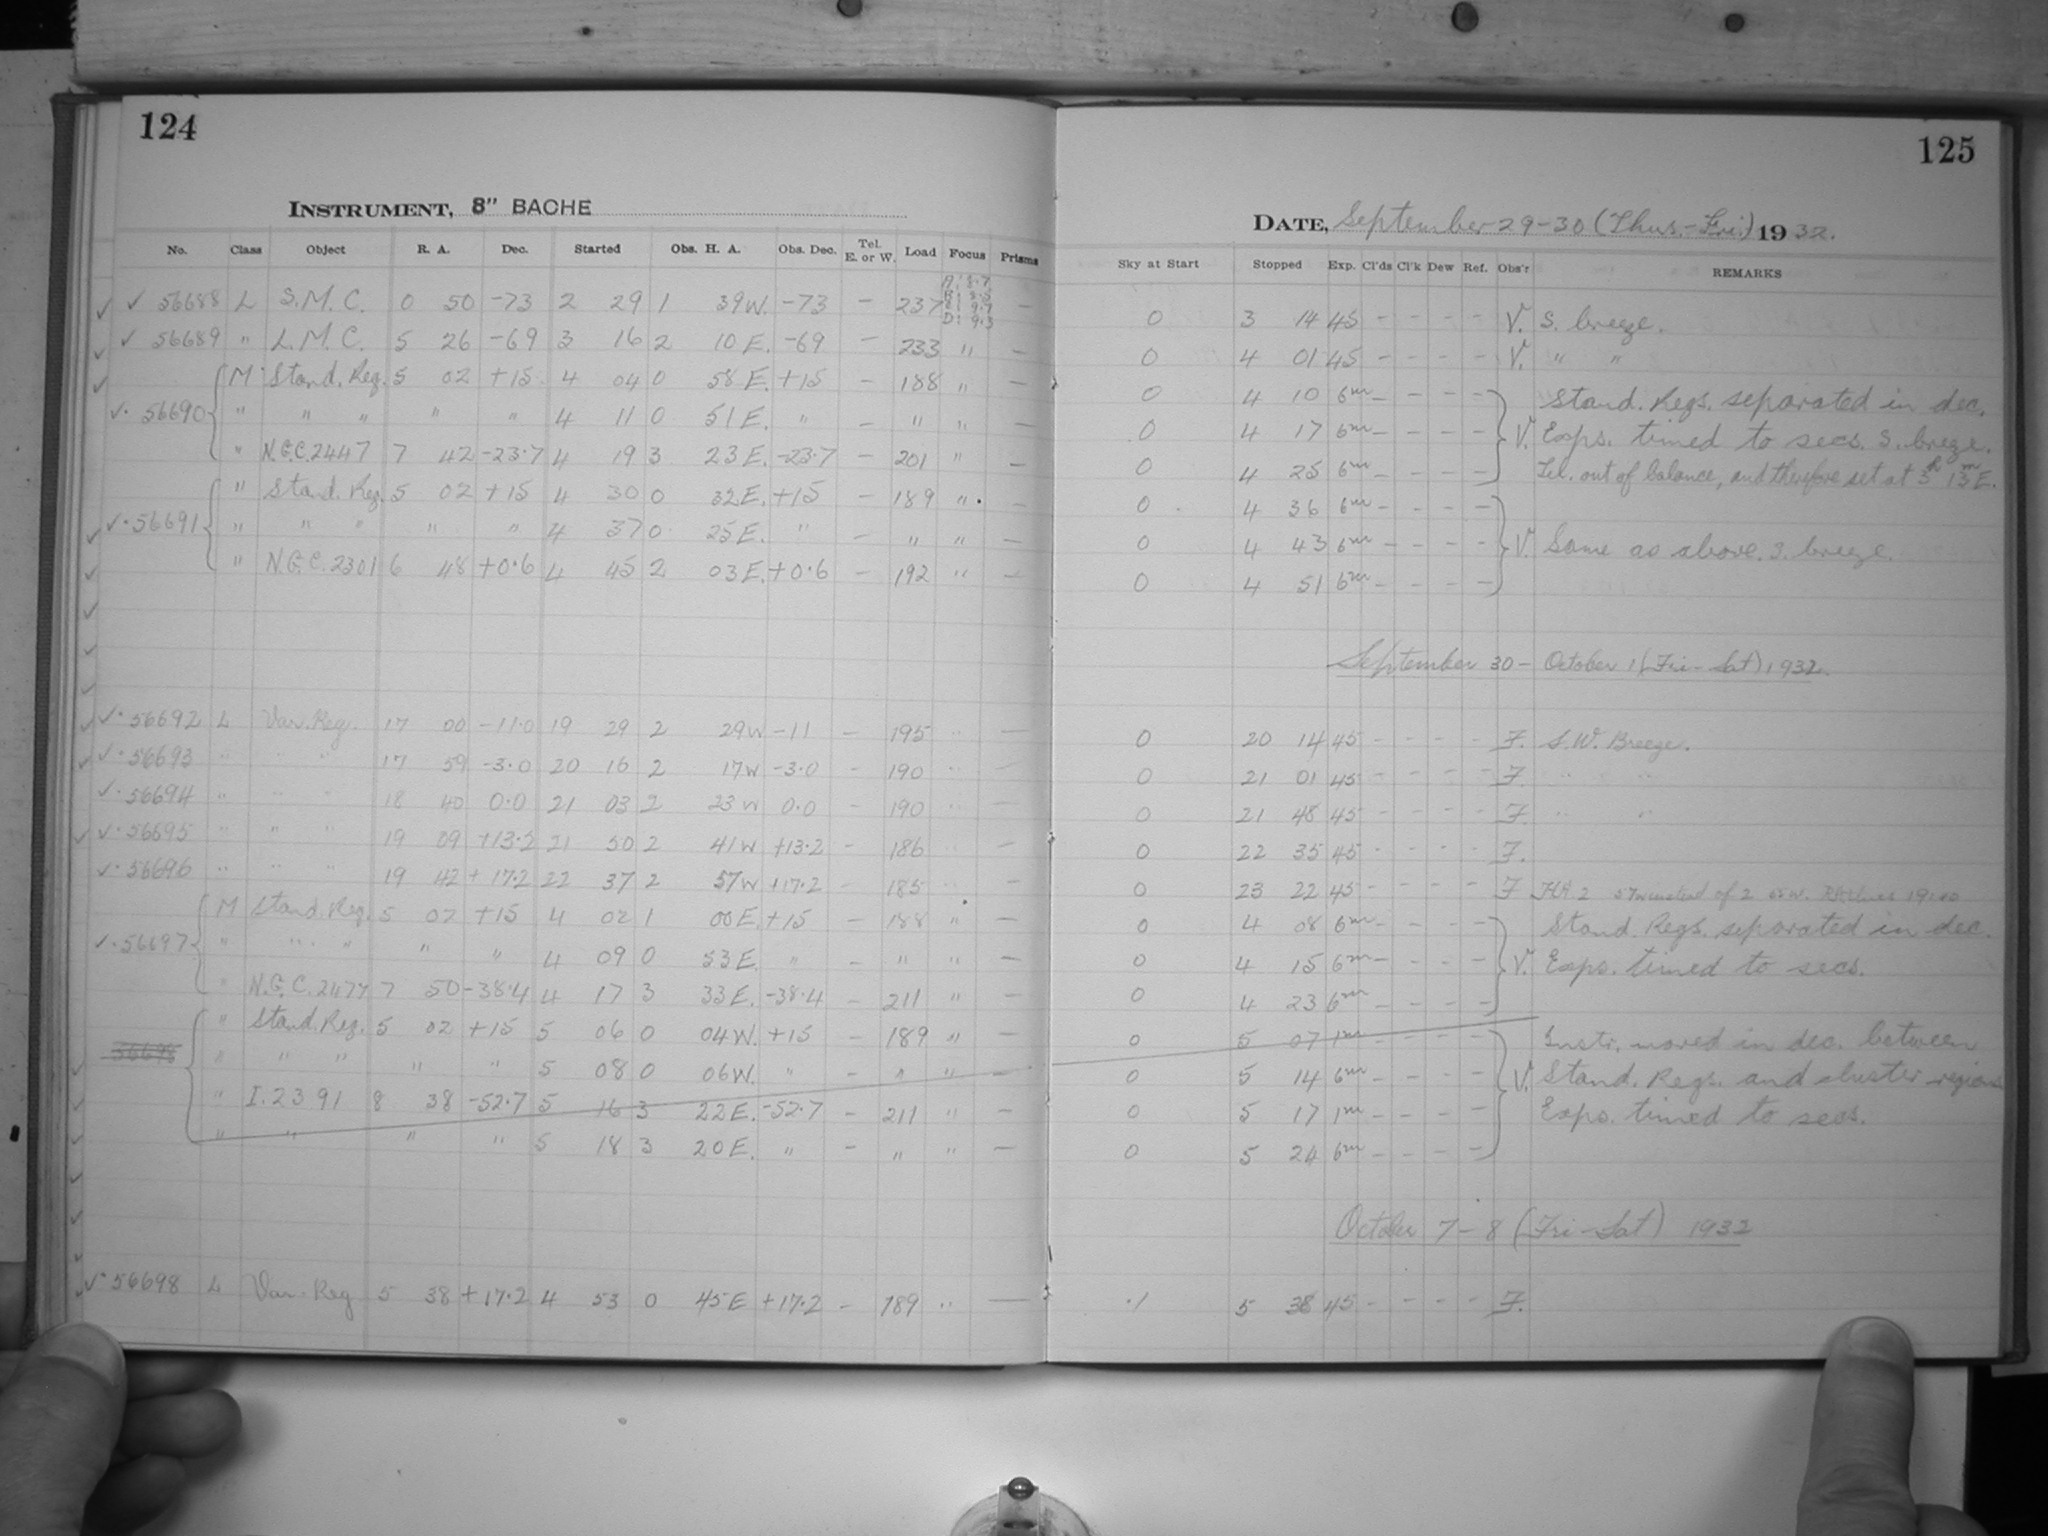 124
INSTRUMENT, 8" BACHE
No. Class Object R. A. Dec. Started Obs. H. A. Obs. Dec. Tel. E. or W. Load Focus Prisms
✓ 56688 L S.M.C. 0 50 -73 2 29 1 39W. -73 - 237 -
✓ 56689 " L.M.C. 5 26 -69 3 16 2 10E. -69 - 233 " -
M Stand. Reg. 5 02 +15 4 04 0 58E. +15 - 188 " -
✓. 56690 " " " " " 4 11 0 51E. " - " " -
" N.G.C.2447 7 42 -23.7 4 19 3 23E. -23.7 - 201 " -
" Stand. Reg. 5 02 +15 4 30 0 32E. +15 - 189 " -
✓. 56691 " " " " " 4 37 0 25E. " - " " -
" N.G.C.2301 6 48 +0.6 4 45 2 03E. +0.6 - 192 " -
✓. 56692 L Var. Reg. 17 00 -11.0 19 29 2 29W -11 - 195 " -
✓. 56693 " " " 17 59 -3.0 20 16 2 17W -3.0 - 190 " -
✓. 56694 " " " 18 40 0.0 21 03 2 23W 0.0 - 190 " -
✓. 56695 " " " 19 09 +13.2 21 50 2 41W +13.2 - 186 -
✓. 56696 " " " 19 42 +17.2 22 37 2 57W +17.2 - 185 " -
M Stand. Reg. 5 02 +15 4 02 1 00E. +15 - 188 " -
✓. 56697 " " " " " 4 09 0 53E. " - " " -
" N.G.C.2477 7 50 -38.4 4 17 3 33E. -38.4 - 211 " -
" Stand. Reg. 5 02 +15 5 06 0 04W. +15 - 189 " -
56698 " " " " " 5 08 0 06W. " - " " -
" I.2391 8 38 -52.7 5 16 3 22E. -52.7 - 211 " -
" " " " 5 18 3 20E. " - " " -
✓. 56698 L Var. Reg 5 38 +17.2 4 53 0 45E +17.2 - 189 " -
125
DATE, September 29-30 (Thus.-Fri.) 1932.
Sky at Start Stopped Exp. Cl'ds Cl'k Dew Ref. Obs'r REMARKS
0 3 14 45 - - - - V. S. breeze.
0 4 01 45 - - - - V. " "
0 4 10 6m - - - - Stand. Regs. separated in dec.
0 4 17 6m - - - - V. Exps. timed to secs. S. breeze.
0 4 25 6m - - - - Tel. out of balance, and therefore set at 3h 13m E.
0 4 36 6m - - - -
0 4 43 6m - - - - V. Same as above. S. breeze.
0 4 51 6m - - - -
September 30 - October 1 (Fri-Sat) 1932.
0 20 14 45 - - - - F. S.W. Breeze.
0 21 01 45 - - - - F. " "
0 21 48 45 - - - - F. " "
0 22 35 45 - - - - F.
0 23 22 45 - - - - F H.A. 2 57w instead of 2
0 4 08 6m - - - - Stand. Regs. separated in dec.
0 4 15 6m - - - - V. Exps. timed to secs.
0 4 23 6m - - - -
0 5 07 1m - - - - Instr. moved in dec. between
0 5 14 6m - - - - V. Stand. Regs. and cluster regions
0 5 17 1m - - - - Exps. timed to secs.
0 5 24 6m - - - -
October 7-8 (Fri-Sat) 1932
.1 5 38 45 - - - - F.